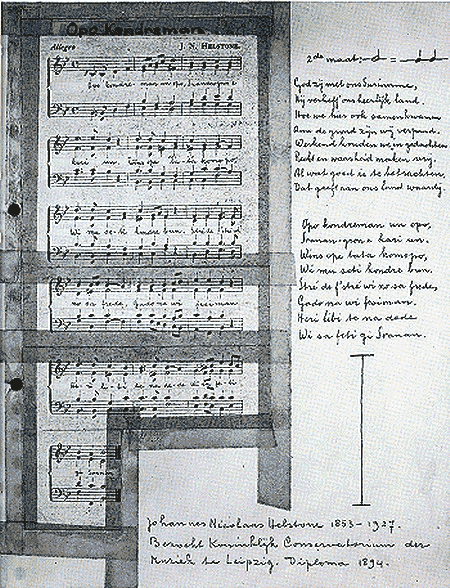 Opo Kondreman.
Allegro J. N. HELSTONE.
kari un. Wans ope
Wi
no sa frede, Gado na wi
gi Sranan
2de maat: =
God zij met ons Suriname,
Hij verheff' ons heerlijk land.
Hoe we hier ook samenkwamen
Aan de grond zijn wij verpand.
Werkend houden we in gedachten
Recht en waarheid maken vrij.
Al wat goed is te betrachten,
Dat geeft aan ons land waardij.
Opo kondreman un opo,
Sranan-gron e kari un.
Wans ope tata komopo,
Wi mu seti kondre bun.
Stré de f'stré wi no sa frede,
Gado na wi fesiman.
Heri libi te na dede
Wi sa feti gi Sranan.
Johannes Nicolaas Helstone 1853-1927.
Bezocht Koninklijk Conservatorium der
Muziek te Leipzig. Diploma 1894.